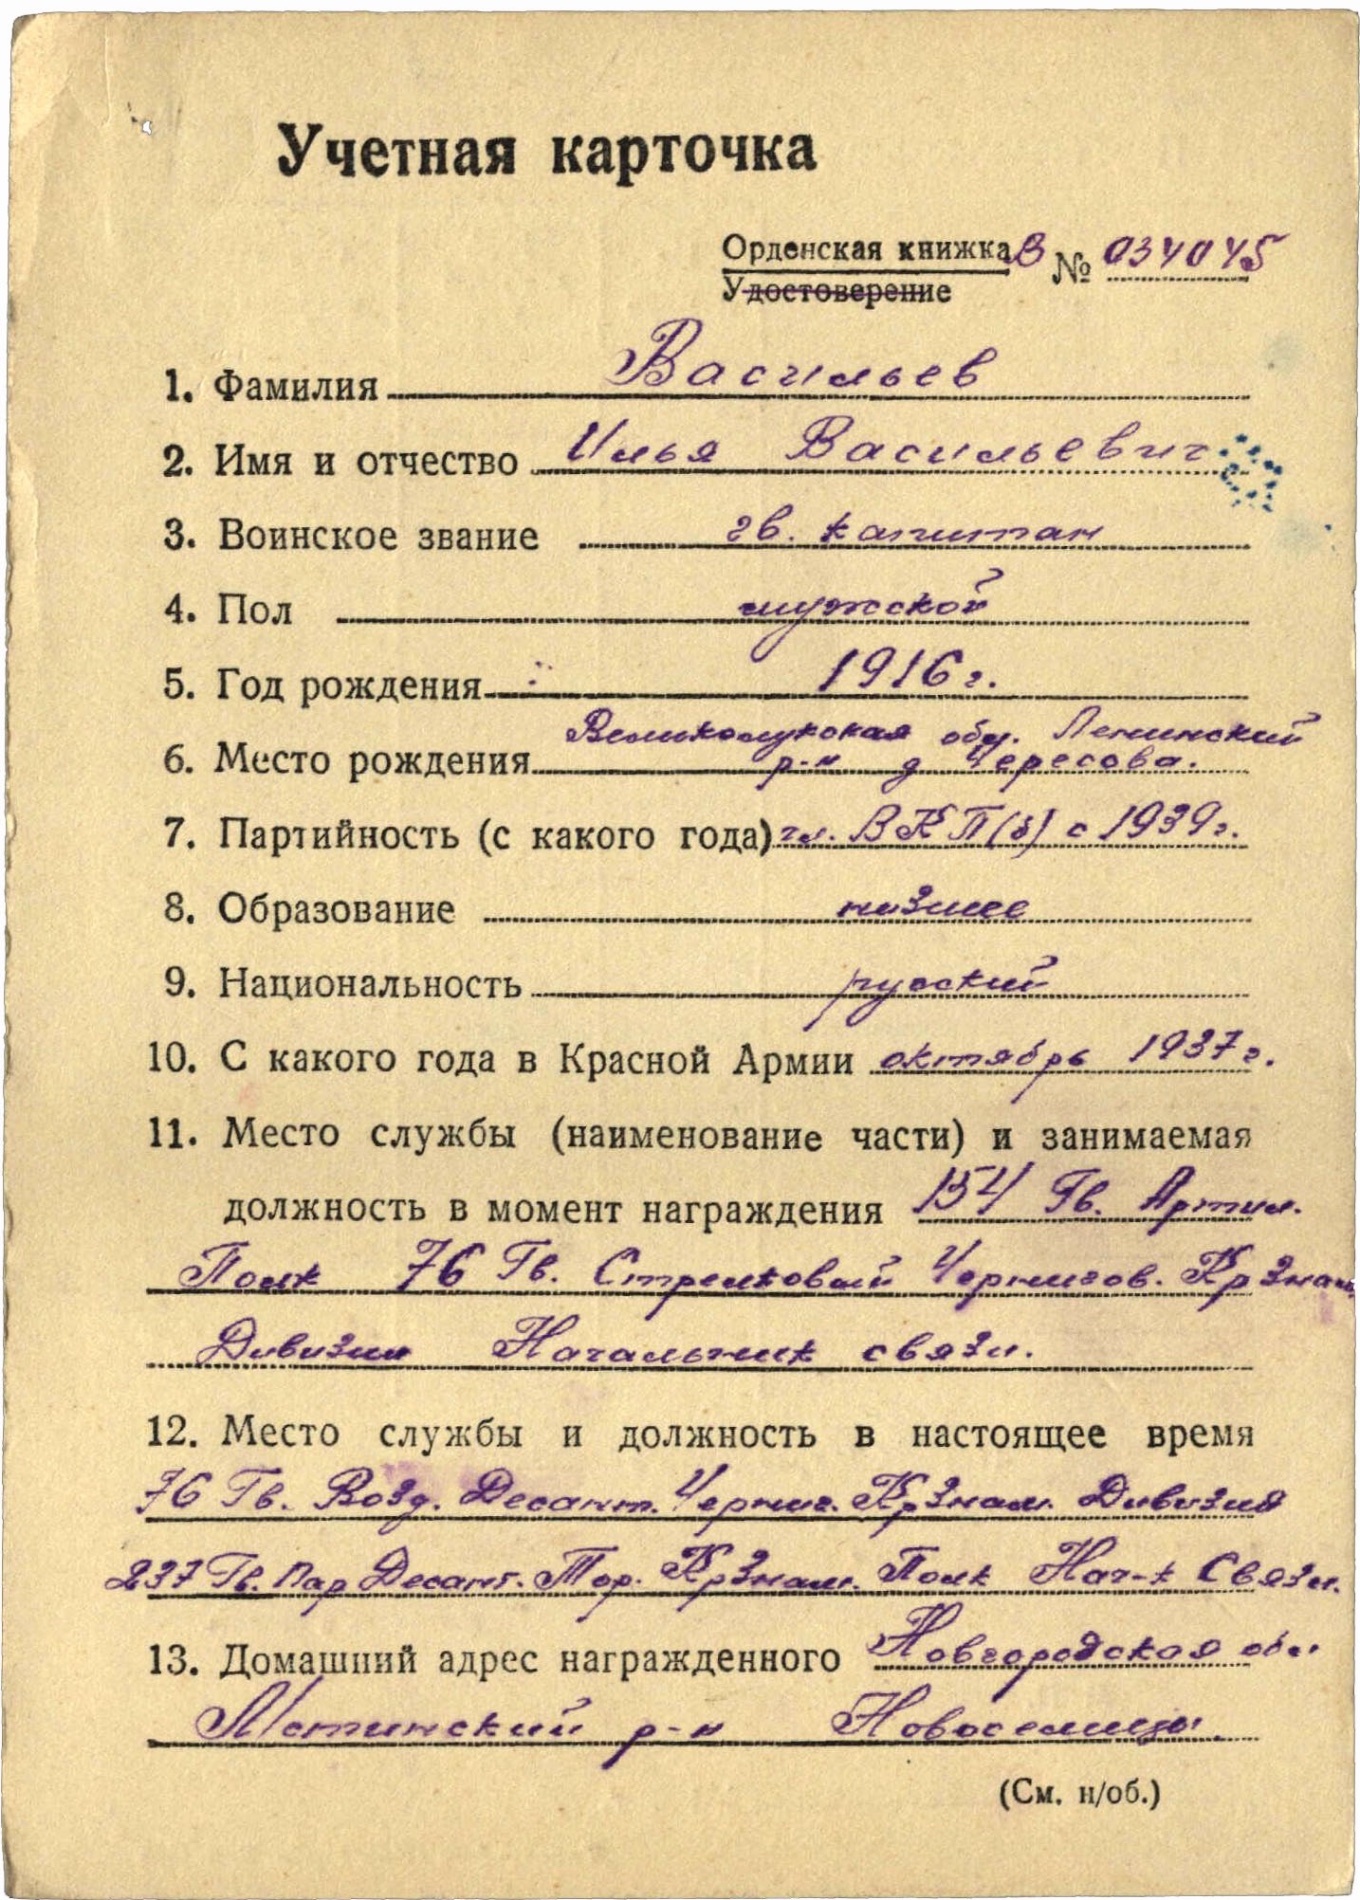 Учетная карточка
Орденская книжка В № 034045
Удостоверение
1. Фамилия Васильев
2. Имя и отчество Илья Васильевич
3. Воинское звание гв. капитан
4. Пол мужской
5. Год рождения 1916 г.
Великолукская обл. Ленинский
6. Место рождения р-н д Чересова.
7. Партийность (с какого года) чл. ВКП(б) с 1939 г.
8. Образование низшее
9. Национальность русский
10. С какого года в Красной Армии октябрь 1937 г.
11. Место службы (наименование части) и занимаемая
должность в момент награждения 154 Гв. Артил.
Полк 76 Гв. Стрелковый Чернигов. Кр Знам.
Дивизии Начальник связи.
12. Место службы и должность в настоящее время
76 Гв. Возд. Десант. Черниг. Кр Знам. Дивизия
237 Гв. Пар Десант. Тор. Кр Знам. Полк Нач-к Связи.
13. Домашний адрес награжденного Новгородская обл.
Мстинский р-н Новоселицы.
(См. н/об.)